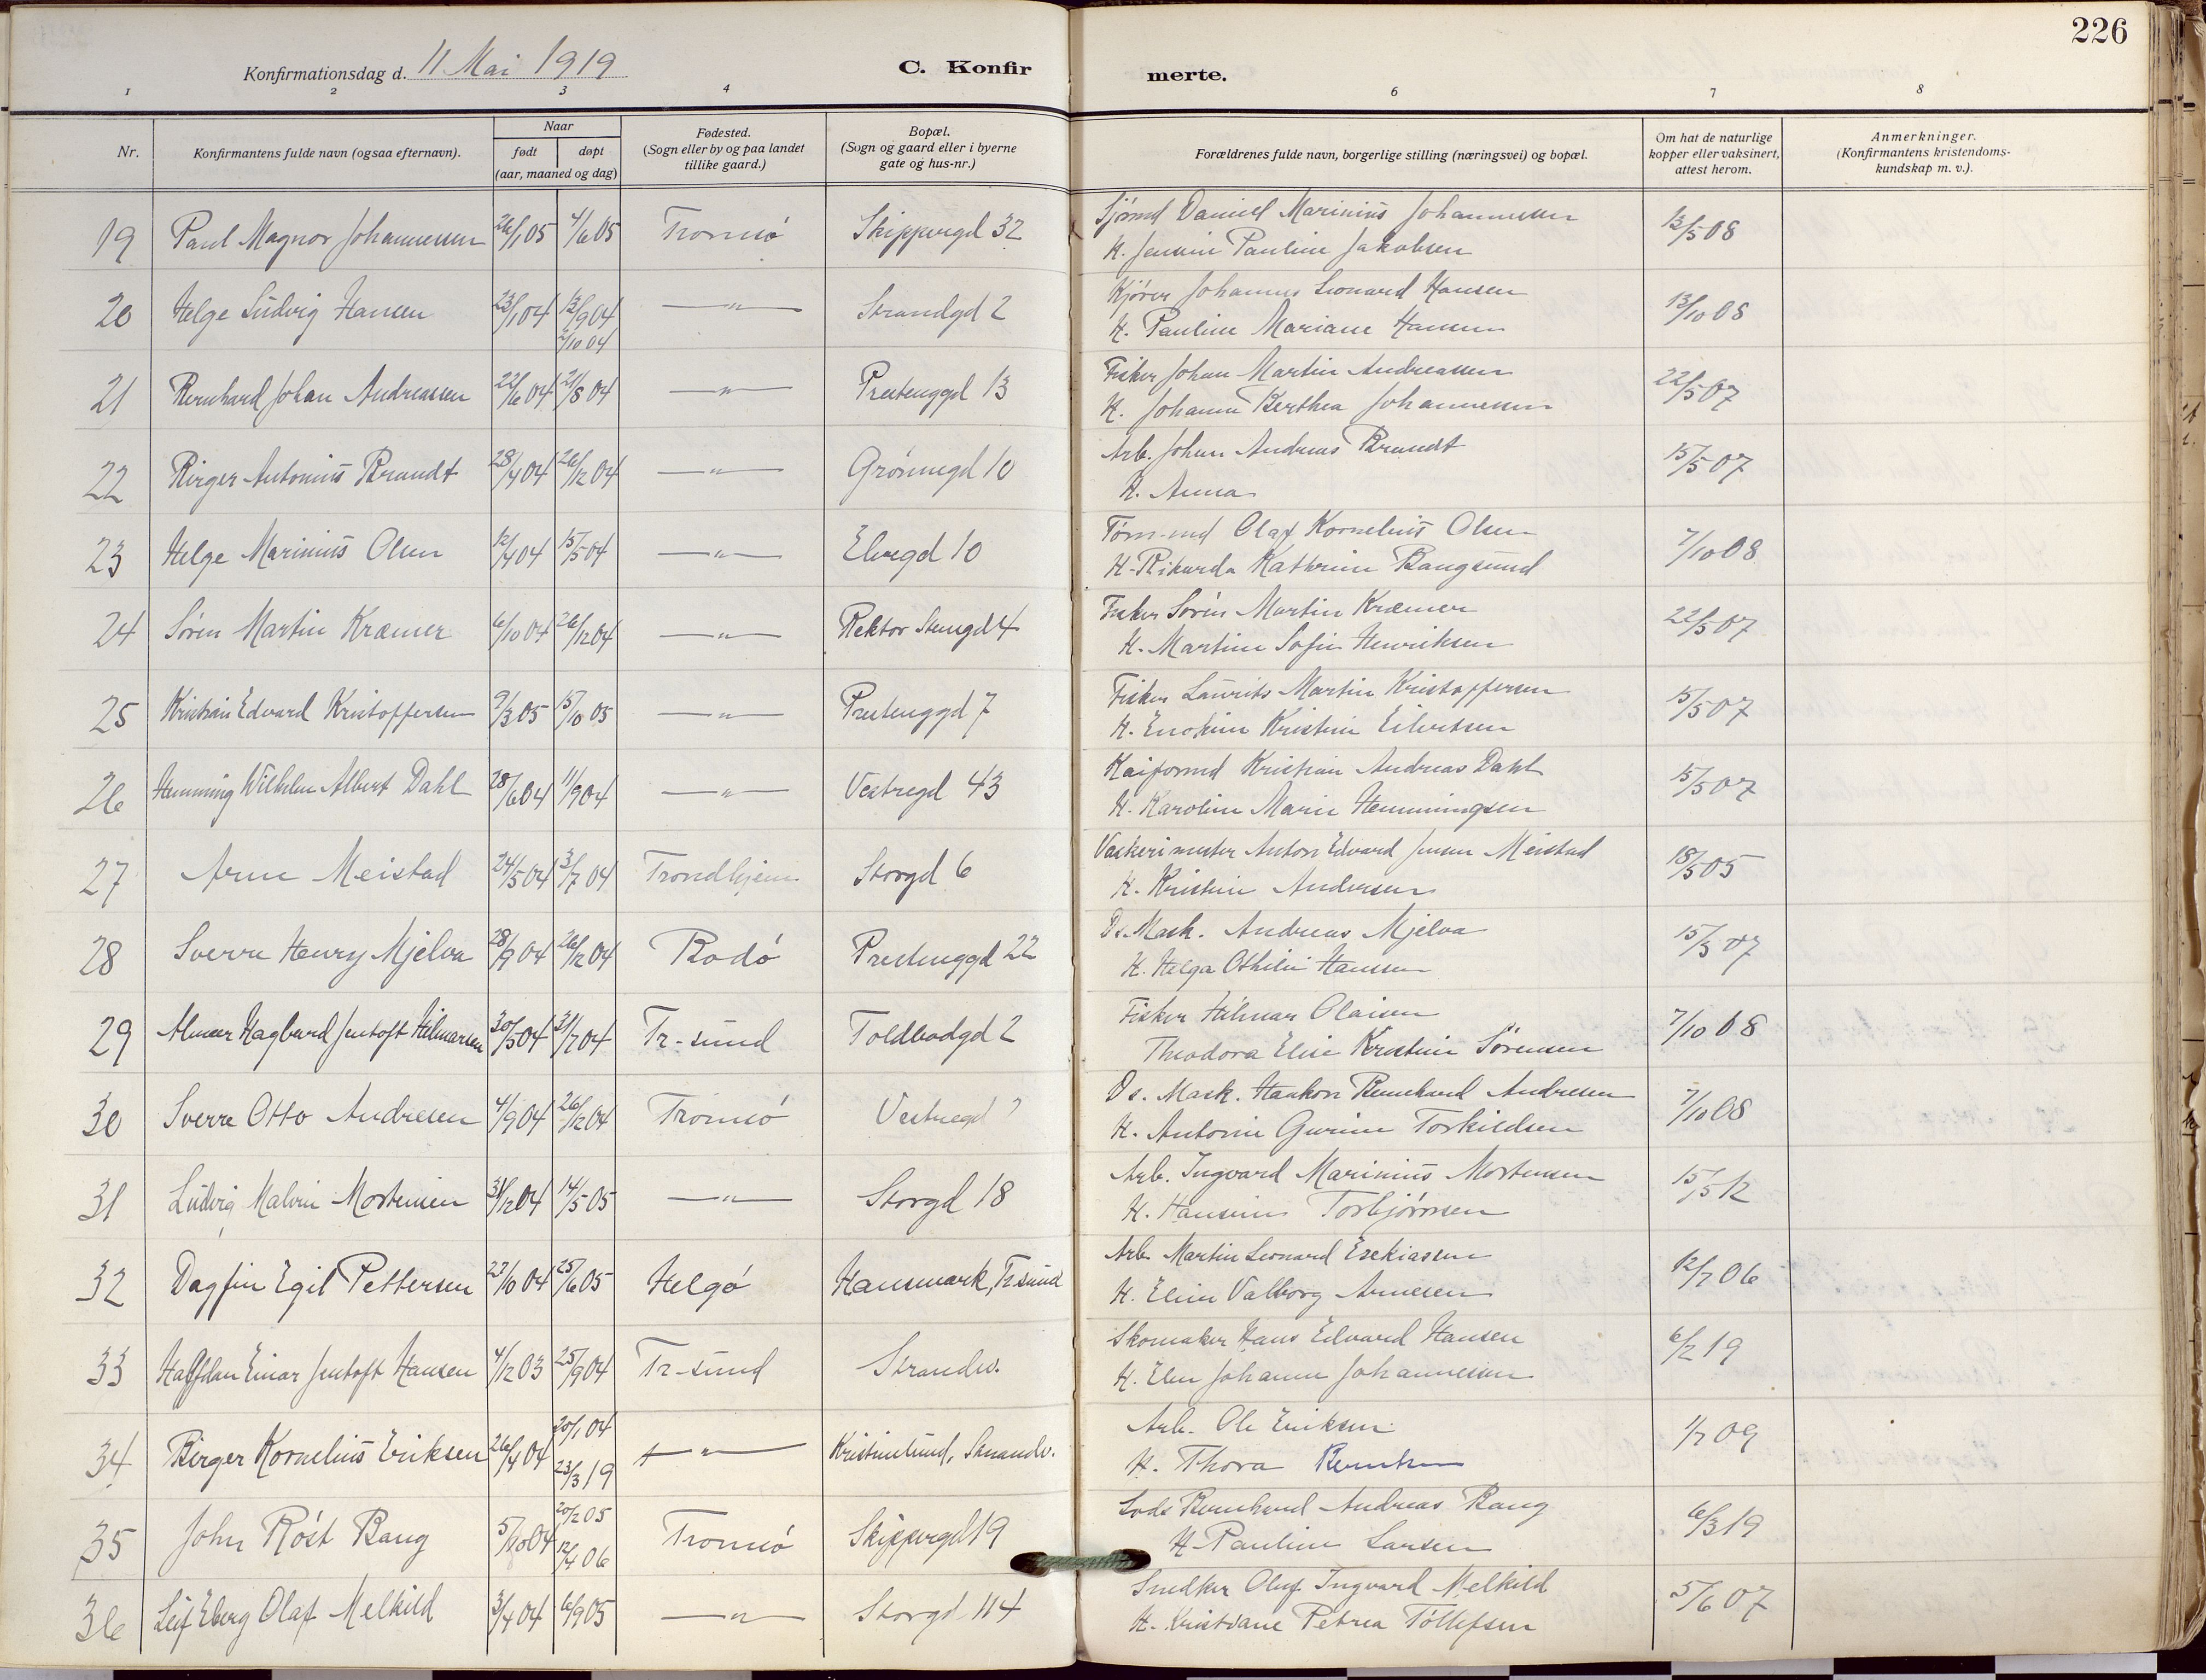 226
Konfirmationsdag d. 11 Mai 1919
C. Konfir
merte.
1 2 3 4 6 7 8
Nr. Konfirmantens fulde navn (ogsaa efternavn). Naar født døpt (aar, maaned og dag) Fødested. (Sogn eller by og paa landet tillike gaard.) Bopæl. (Sogn og gaard eller i byerne gate og hus-nr.) Forældrenes fulde navn, borgerlige stilling (næringsvei) og bopæl. Om hat de naturlige kopper eller vaksinert, attest herom. Anmerkninger. (Konfirmantens kristendoms-kundskap m. v.).
19 Paul Magnor Johannessen 26/1 05 4/6 05 Tromsö Skippergd 32 Sjømd Daniel Marinius Johannessen 12/5 08
H. Jensine Pauline Jakobsen
20 Helge Ludvig Hansen 23/1 04 13/9 04 2/10 04 —"— Strandgd 2 Kjører Johannes Leonard Hansen 13/10 08
H. Pauline Mariane Hansen
21 Bernhard Johan Andreassen 22/6 04 21/8 04 —"— Prestenggd 13 Fisker Johan Martin Andreassen 22/5 07
H. Johanne Berthea Johannessen
22 Birger Antonius Brandt 28/4 04 26/12 04 —"— Grönnegd 10 Arb. Johan Andreas Brandt 15/5 07
H. Anna
23 Helge Marinius Olsen 12/4 04 15/5 04 —"— Elvegd 10 Tøm.md Olaf Kornelius Olsen 7/10 08
H. Rikarda Kathrine Bangsund
24 Sören Martin Kræmer 6/10 04 26/12 04 —"— Rektor Stengd 4 Fisker Sören Martin Kræmer 22/5 07
H. Martine Sofie Henriksen
25 Kristian Edvard Kristoffersen 9/3 05 15/10 05 —"— Prestenggd 7 Fisker Laurits Martin Kristoffersen 15/5 07
H. Enokine Kristine Eilertsen
26 Henning Wilhelm Albert Dahl 28/6 04 11/9 04 —"— Vestregd 43 Kaiformd Kristian Andreas Dahl 15/5 07
H. Karoline Marie Henningsen
27 Arne Meistad 24/5 04 3/7 04 Trondhjem Storgd 6 Vaskerimester Anton Edvard Jensen Meistad 18/5 05
H. Kristine Andersen
28 Sverre Henry Mjelva 28/9 04 26/12 04 Bodö Prestenggd 22 Ds. Mask. Andreas Mjelva 15/5 07
H. Helga Othilie Hanssen
29 Almar Hagbard Jentoft Hilmarsen 30/5 04 31/7 04 Tr-sund Toldbodgd 2 Fisker Hilmar Olaisen 7/10 08
Theodora Elise Kristine Sörensen
30 Sverre Otto Andresen 4/9 04 26/12 04 Tromsö Vestregd ? Ds. Mask. Haakon Bernhard Andresen 7/10 08
H. Antonie Gurine Torkildsen
31 Ludvig Malvin Mortensen 31/12 04 14/5 05 —"— Storgd 18 Arb. Ingvard Marinius Mortensen 15/5 12
H. Hansine Torbjörnsen
32 Dagfin Egil Pettersen 27/10 04 25/6 05 Helgö Hansmark, Tr.sund Arb. Martin Leonard Esekiassen 12/7 06
H. Eline Valborg Arnesen
33 Halfdan Einar Jentoft Hansen 4/12 03 25/9 04 Tr-sund Strandv. Skomaker Hans Edvard Hansen 6/2 19
H. Elen Johanne Johannesen
34 Birger Kornelius Eriksen 26/4 04 20/1 04 23/3 19 —"— Kristinelund, Strandv. Arb. Ole Eriksen 1/7 09
H. Thora Berntsen
35 John Röst Bang 5/10 04 20/2 05 12/4 06 Tromsö Skippergd 19 Lods Bernhard Andreas Bang 6/3 19
H. Pauline Larsen
36 Leif Eberg Olaf Melkild 3/4 04 6/9 05 —"— Storgd 114 Snedker Oluf Ingvard Melkild 5/6 07
H. Kristiane Petrea Tollefsen